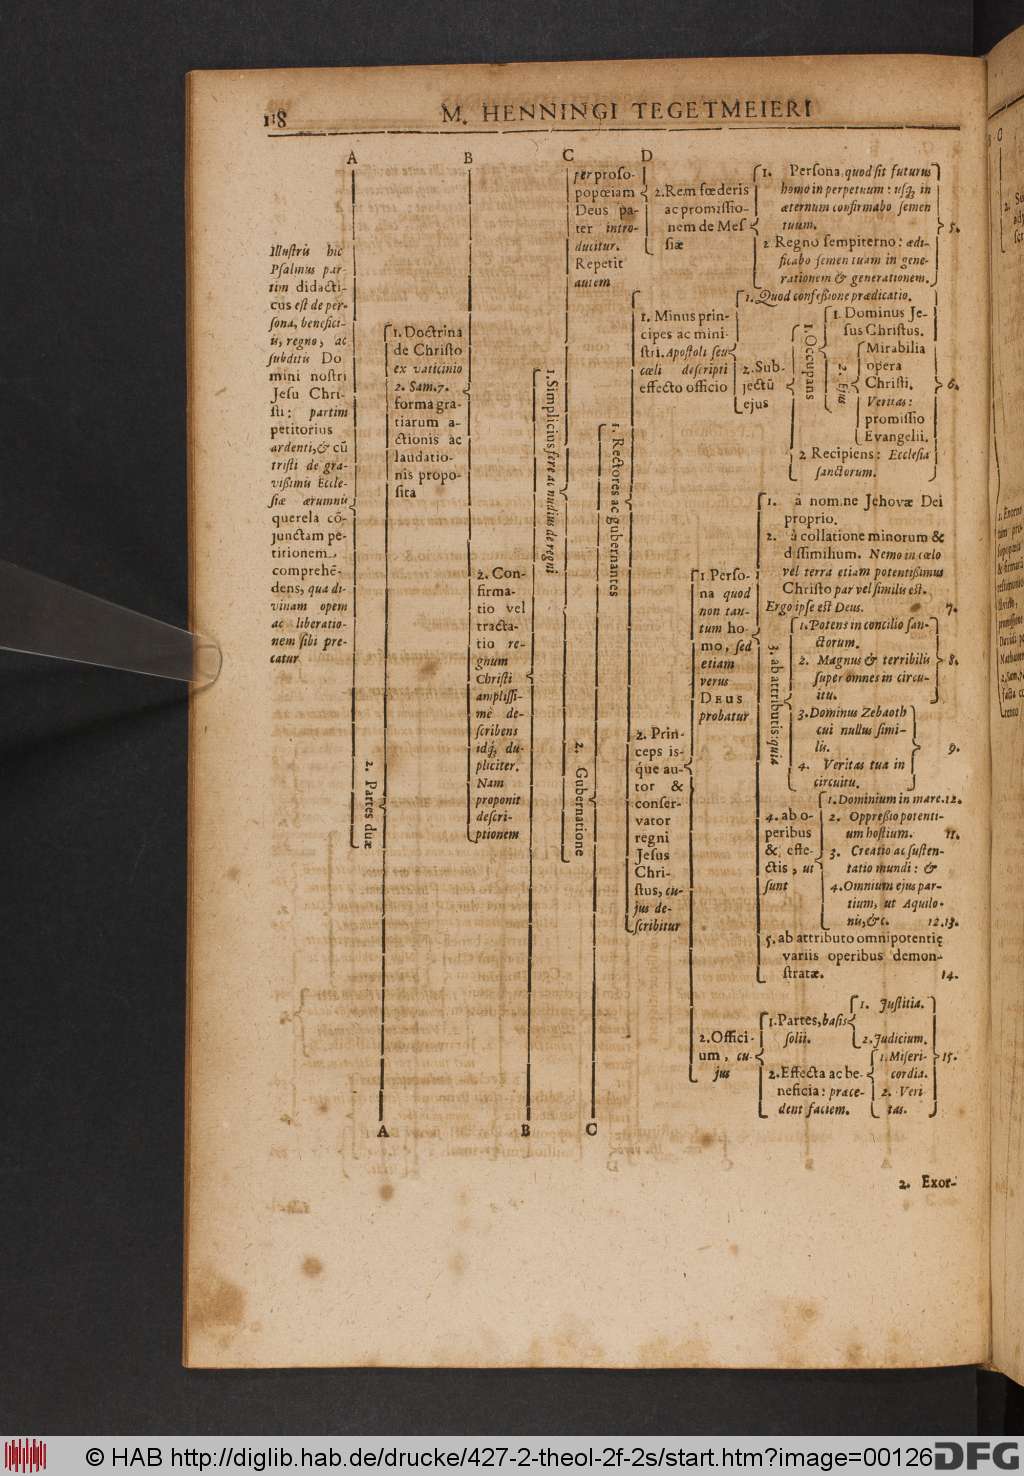 118
M. HENNINGI TEGETMEIERI
A
B
C
D
Illustris hic
Psalmus par-
tim didacti-
cus est de per-
sona, benefici-
is, regno, ac
subditis Do
mini nostri
Jesu Chri-
sti: partim
petitorius
ardenti, & cū
tristi de gra-
vissimis Eccle-
siæ ærumnis
querela cō-
junctam pe-
titionem
comprehē-
dens, qua di-
vinam opem
ac liberatio-
nem sibi pre-
catur
2. Partes duæ
1. Doctrina
de Christo
ex vaticinio
2. Sam. 7.
forma gra-
tiarum a-
ctionis ac
laudatio-
nis propo-
sita
2. Con-
firma-
tio vel
tracta-
tio re-
gnum
Christi
amplissi-
mè de-
scribens
idq́, du-
pliciter.
Nam
proponit
descri-
ptionem
1. Simplicius fere ac nudius de regni
per proso-
popœiam
Deus pa-
ter intro-
ducitur.
Repetit
autem
2. Gubernatione
1. Rectores ac gubernantes
2. Rem fœderis
ac promissio-
nem de Mes
siæ
1. Persona quod sit futurus
homo in perpetuum: usq́, in
æternum confirmabo semen
tuum.
2 Regno sempiterno: ædi-
ficabo semen tuum in gene-
rationem & generationem.
5.
1. Minus prin-
cipes ac mini-
stri. Apostoli seu
cœli descripti
effecto officio
1. Quod confessione prædicatio.
2. Sub-
jectū
ejus
1. Occupans
1. Dominus Je-
sus Christus.
2. Ejus
Mirabilia
opera
Christi.
Veritas:
promissio
Evangelii.
2 Recipiens: Ecclesia
sanctorum.
6.
2. Prin-
ceps is-
q́ue au-
tor &
conser-
vator
regni
Jesus
Chri-
stus, cu-
jus de-
scribitur
1 Perso-
na quod
non tan-
tum ho-
mo, sed
etiam
verus
DEUS
probatur
1. á nomine Jehovæ Dei
proprio.
2. à collatione minorum &
dissimilium. Nemo in cœlo
vel terra etiam potentissimus
Christo par vel similis est.
Ergo ipse est Deus. 7.
3. ab attributis: quia
1. Potens in concilio san-
ctorum.
2. Magnus & terribilis
super omnes in circu-
itu.
8.
3. Dominus Zebaoth
cui nullus simi-
lis.
4. Veritas tua in
circuitu.
9.
4. ab o-
peribus
& effe-
ctis, ut
sunt
1. Dominium in mare. 12.
2. Oppressio potenti-
um hostium. 11.
3. Creatio ac susten-
tatio mundi: &
4. Omnium ejus par-
tium, ut Aquilo-
nis, &c. 12. 13.
5. ab attributo omnipotentię
variis operibus demon-
stratæ. 14.
2. Offici-
um, cu-
jus
1. Partes, basis
solii.
1. Justitia.
2. Judicium.
2. Effecta ac be-
neficia: præce-
dent faciem.
1. Miseri-
cordia.
2. Veri
tas.
15.
A
B
C
2. Exor-
© HAB http://diglib.hab.de/drucke/427-2-theol-2f-2s/start.htm?image=00126
DFG